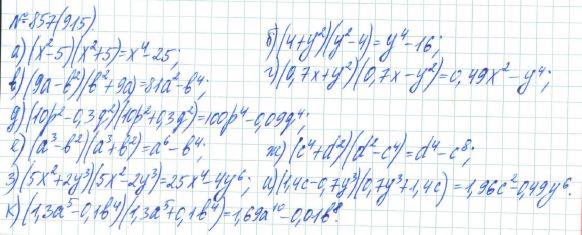 №857(915).
а) (x²-5)(x²+5)=x⁴-25; б) (4+y²)(y²-4)=y⁴-16;
в) (9a-b²)(b²+9a)=81a²-b⁴; г) (0,7x+y²)(0,7x-y²)=0,49x²-y⁴;
д) (10p²-0,3q²)(10p²+0,3q²)=100p⁴-0,09q⁴;
е) (a³-b²)(a³+b²)=a⁶-b⁴; ж) (c⁴+d²)(d²-c⁴)=d⁴-c⁸;
з) (5x²+2y³)(5x²-2y³)=25x⁴-4y⁶; и) (1,4c-0,7y³)(0,7y³+1,4c)=1,96c²-0,49y⁶.
к) (1,3a⁵-0,1b⁴)(1,3a⁵+0,1b⁴)=1,69a¹⁰-0,01b⁸.